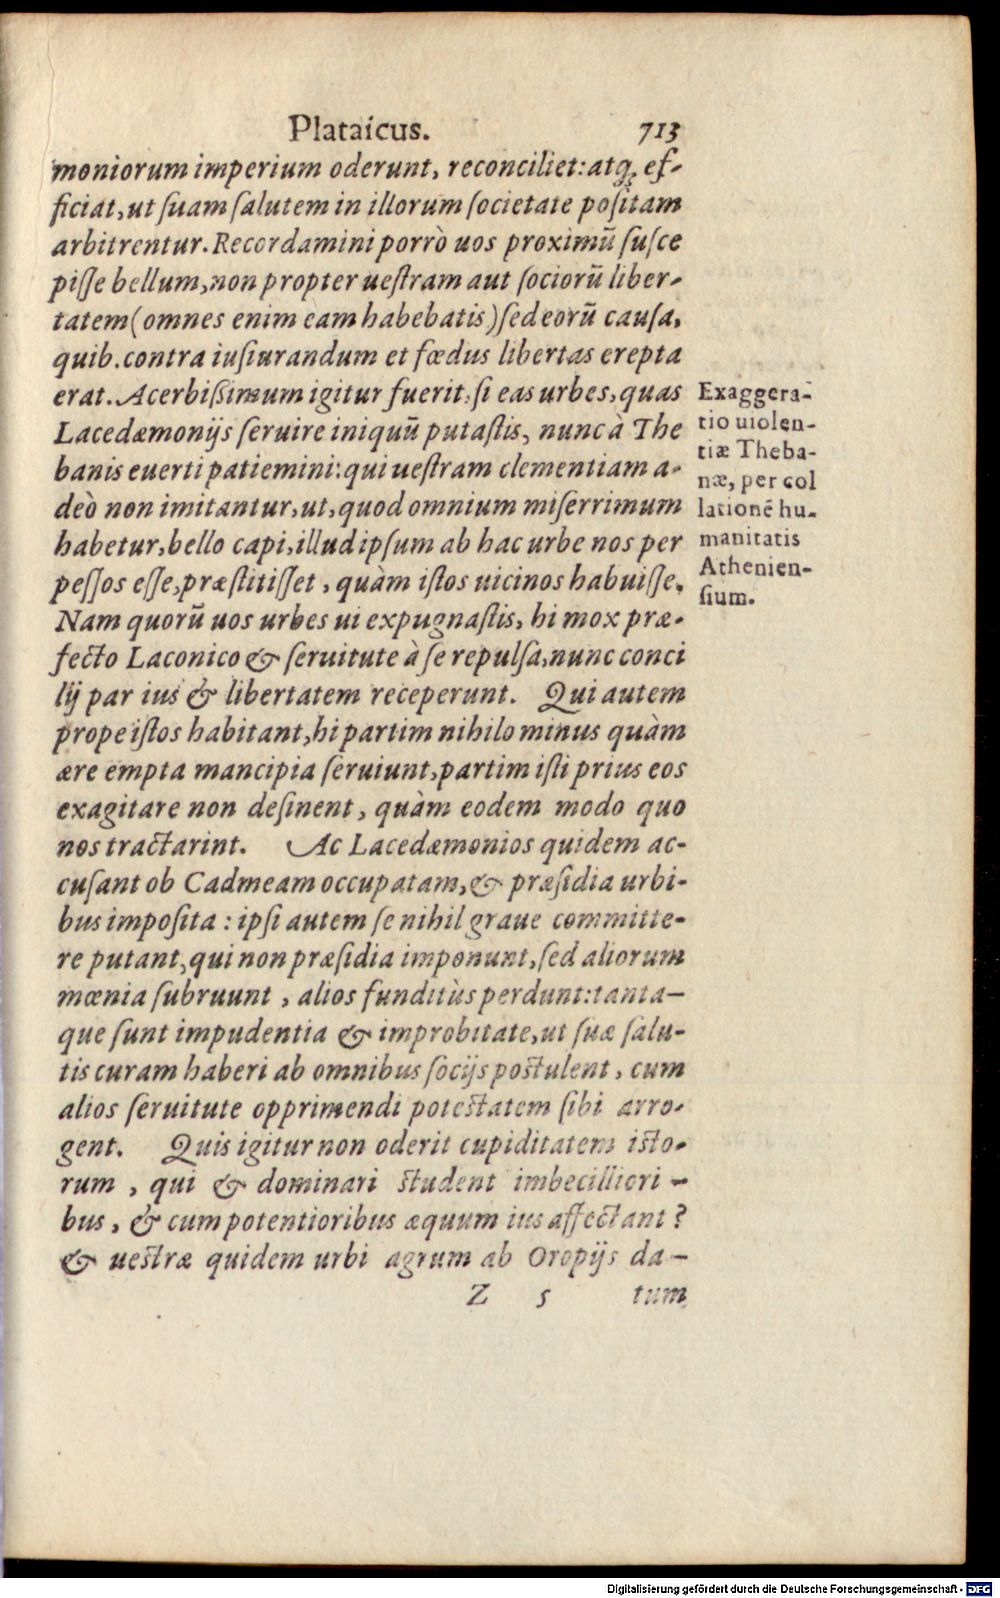 Plataicus. 713
moniorum imperium oderunt, reconciliet: atq; ef-
ficiat, ut suam salutem in illorum societate positam
arbitrentur. Recordamini porrò uos proximũ susce
pisse bellum, non propter uestram aut sociorũ liber-
tatem (omnes enim eam habebatis) sed eorũ causa,
quib. contra iusiurandum et fœdus libertas erepta
erat. Acerbissimum igitur fuerit, si eas urbes, quas
Lacedæmonijs seruire iniquũ putastis, nunc à The
banis euerti patiemini: qui uestram clementiam a-
deò non imitantur, ut, quod omnium miserrimum
habetur, bello capi, illud ipsum ab hac urbe nos per
pessos esse, præstitisset, quàm istos uicinos habuisse.
Nam quorũ uos urbes ui expugnastis, hi mox præ-
fecto Laconico & seruitute à se repulsa, nunc conci
lij par ius & libertatem receperunt. Qui autem
prope istos habitant, hi partim nihilo minus quàm
ære empta mancipia seruiunt, partim isti prius eos
exagitare non desinent, quàm eodem modo quo
nos tractarint. Ac Lacedæmonios quidem ac-
cusant ob Cadmeam occupatam, & præsidia urbi-
bus imposita: ipsi autem se nihil graue committe-
re putant, qui non præsidia imponunt, sed aliorum
mœnia subruunt, alios funditùs perdunt: tanta-
que sunt impudentia & improbitate, ut suæ salu-
tis curam haberi ab omnibus socijs postulent, cum
alios seruitute opprimendi potestatem sibi arro-
gent. Quis igitur non oderit cupiditatem isto-
rum, qui & dominari student imbecilliori-
bus, & cum potentioribus æquum ius affectant?
& uestræ quidem urbi agrum ab Oropijs da-
Z 5 tum
Exaggera-
tio uiolen-
tiæ Theba-
næ, per col
lationẽ hu-
manitatis
Athenien-
sium.
Digitalisierung gefördert durch die Deutsche Forschungsgemeinschaft - DFG